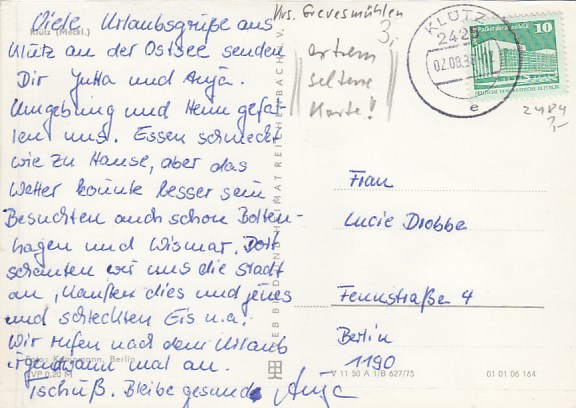 Viele Urlaubsgrüße aus
Klütz (Meckl.)
Klütz an der Ostsee senden
Dir Jutta und Anja.
Umgebung und Heim gefal-
len uns. Essen schmeckt
wie zu Hause, aber das
Wetter könnte besser sein
Besuchten auch schon Bolten-
hagen und Wismar. Dort
schauten wir uns die Stadt
an, kauften dies und jenes
und schleckten Eis u.a.
Wir rufen nach dem Urlaub
irgendwann mal an.
Foto: Kühlmann, Berlin
EVP 0,20 M
Tschüß. Bleibe gesund Anja
Krs. Grevesmühlen
3,-
extrem
seltene
Karte!
VEB BILD UND HEIMAT REICHENBACH I. V.
KLÜTZ
242
02.08.8
e
10
DEUTSCHE DEMOKRATISCHE REPUBLIK
2484
3,-
Frau
Lucie Drobbe
Fennstraße 4
Berlin
1190
V 11 50 A 1/B 627/75
01 01 06 164